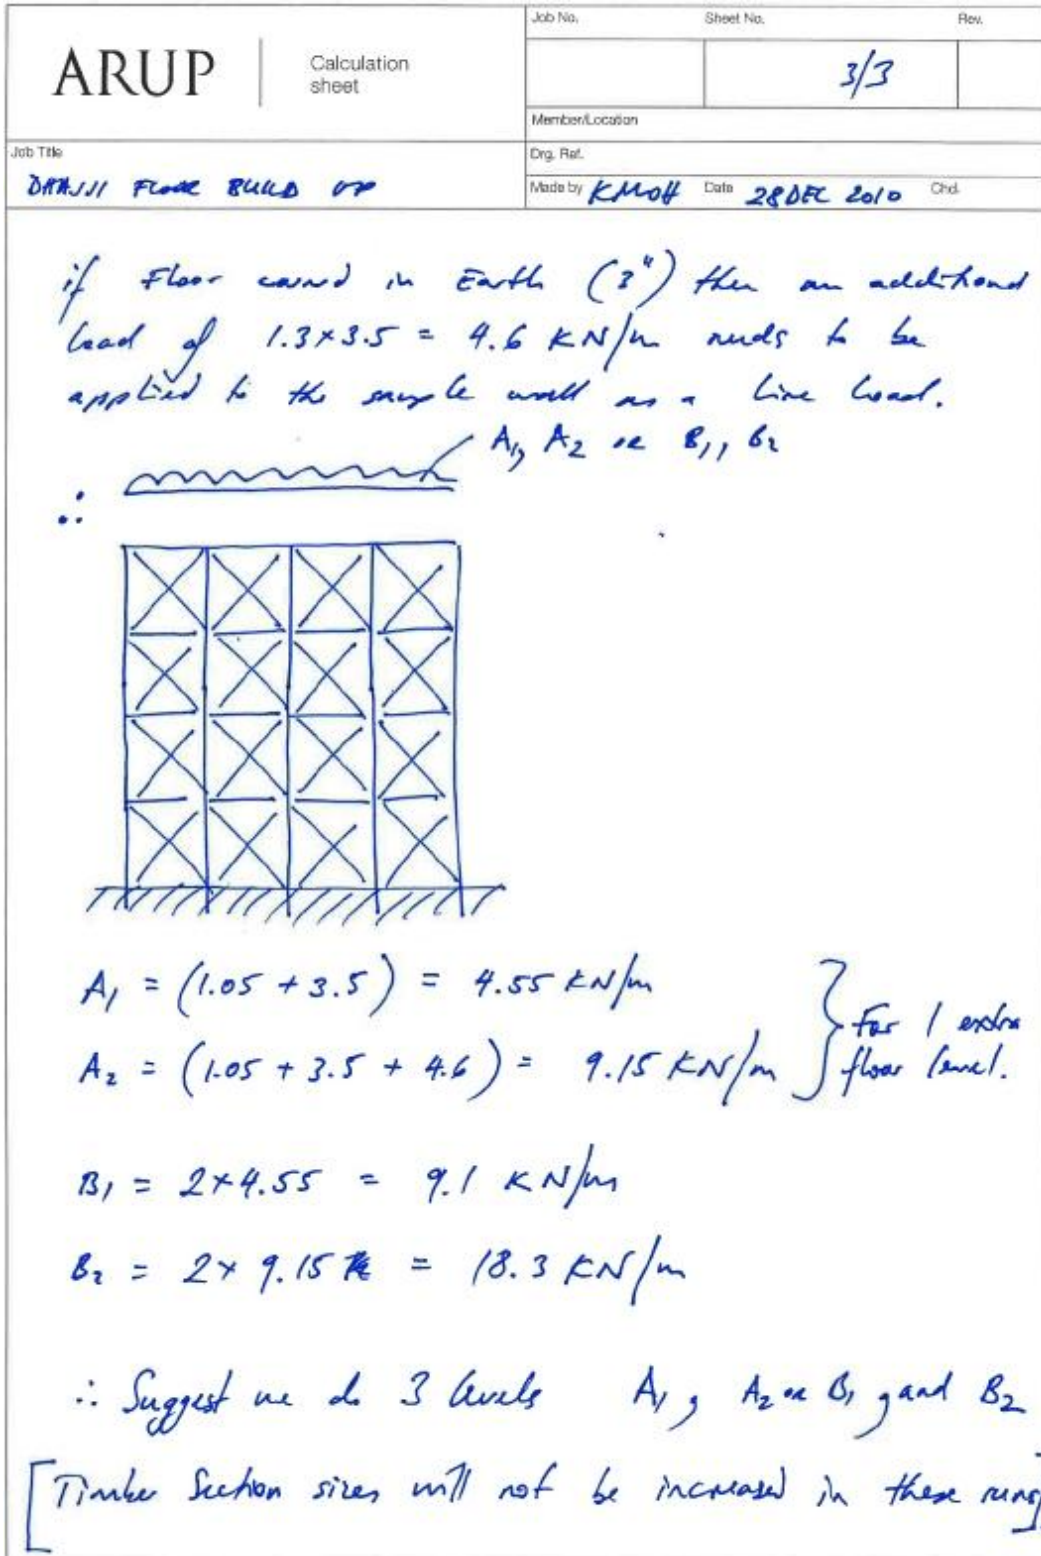 ARUP
Calculation
sheet
Job No.
Sheet No.
Rev.
3/3
Member/Location
Job Title
DHAJJI FLOOR BUILD UP
Drg. Ref.
Made by KMOH Date 28 DEC 2010 Chd.
if Floor in Earth (3") then an additional
load of 1.3×3.5 = 4.6 KN/m needs to be
applied to the sample wall as a line load.
A1, A2 or B1, B2
∴
A1 = (1.05 + 3.5) = 4.55 KN/m
A2 = (1.05 + 3.5 + 4.6) = 9.15 KN/m
For 1 extra
floor level.
B1 = 2×4.55 = 9.1 KN/m
B2 = 2× 9.15 = 18.3 KN/m
∴ Suggest we do 3 levels A1, A2 or B1, and B2
[Timber Section sizes will not be increased in these runs]